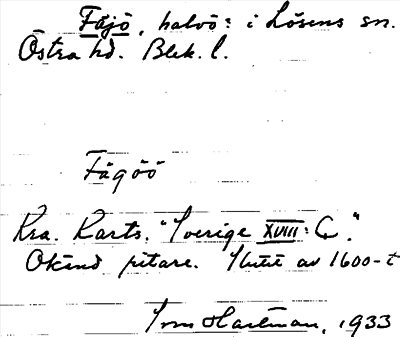 Fäjö, halvö: i Lösens sn.
Östra hd. Blek. l.
Fägöö
Kra. Karts. "Sverige XVIII: G".
Okänd ritare. Slutet av 1600-t
Tom Hartman, 1933